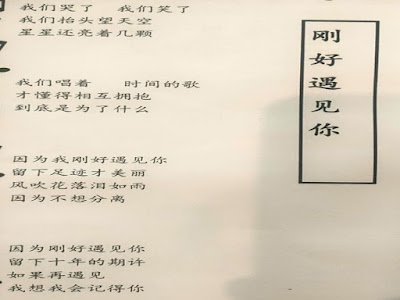 刚好遇见你
我们哭了 我们笑了
我们抬头望天空
星星还亮着几颗
我们唱着 时间的歌
才懂得相互拥抱
到底是为了什么
因为我刚好遇见你
留下足迹才美丽
风吹花落泪如雨
因为不想分离
因为刚好遇见你
留下十年的期许
如果再遇见
我想我会记得你